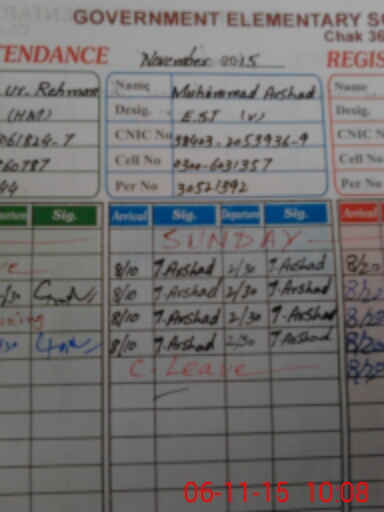 GOVERNMENT ELEMENTARY S
Chak 36
TENDANCE November 2015 REGIS
Ur. Rehman Name Muhammad Arshad Name
(HM) Desig. E.S.T (V) Desig.
061824-7 CNIC No 38403-2053936-9 CNIC N
60787 Cell No 0300-6031357 Cell No
44 Per No 30521392 Per No
parture Sig. Arrival Sig. Departure Sig. Arrival
SUNDAY
ve 8/10 T.Arshad 2/30 T.Arshad 8/20
/30 8/10 T.Arshad 2/30 T.Arshad
ning 8/10 T.Arshad 2/30 T.Arshad
/30 8/10 T.Arshad 2/30 T.Arshad 8/20
C-Leave
06-11-15 10:08